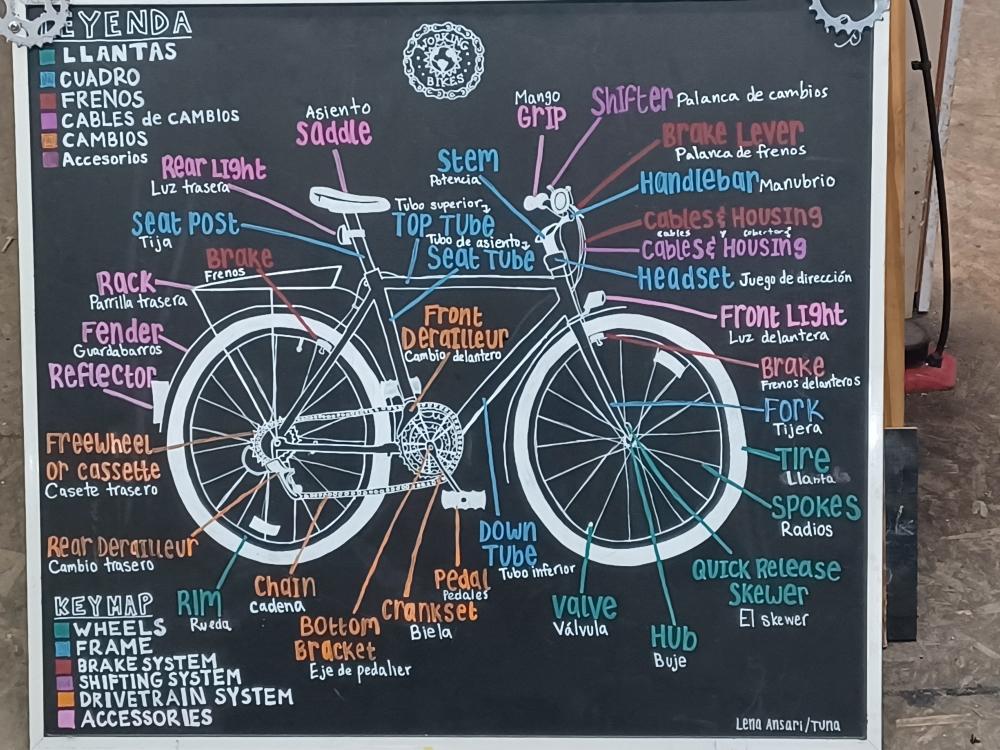 LEYENDA
LLANTAS
CUADRO
FRENOS
CABLES de CAMBIOS
CAMBIOS
Accesorios
WORKING
BIKES
Asiento
Saddle
Mango
GRIP
Shifter Palanca de cambios
Brake Lever
Palanca de frenos
Rear Light
Luz trasera
Stem
Potencia
Handlebar Manubrio
Seat Post
Tija
Tubo superior
TOP TUBE
Tubo de asiento
Seat TUBE
Cables & Housing
cables y cobertores
Cables & Housing
Headset Juego de dirección
Brake
Frenos
Rack
Parrilla trasera
Fender
Guardabarros
Reflector
Front
Derailleur
Cambio delantero
Front Light
Luz delantera
Brake
Frenos delanteros
Fork
Tijera
Tire
Llanta
Spokes
Radios
Freewheel
or cassette
Casete trasero
Rear Derailleur
Cambio trasero
Rim
Rueda
Chain
Cadena
Bottom
Bracket
Eje de pedalier
Crankset
Biela
Pedal
Pedales
Down
Tube
Tubo inferior
Valve
Válvula
Hub
Buje
Quick Release
Skewer
El skewer
KEY MAP
WHEELS
FRAME
BRAKE SYSTEM
SHIFTING SYSTEM
DRIVETRAIN SYSTEM
ACCESSORIES
Lena Ansari/Tuna